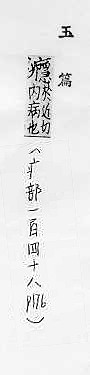 玉篇
癮於近切內病也
(疒部一百四十八 P176)